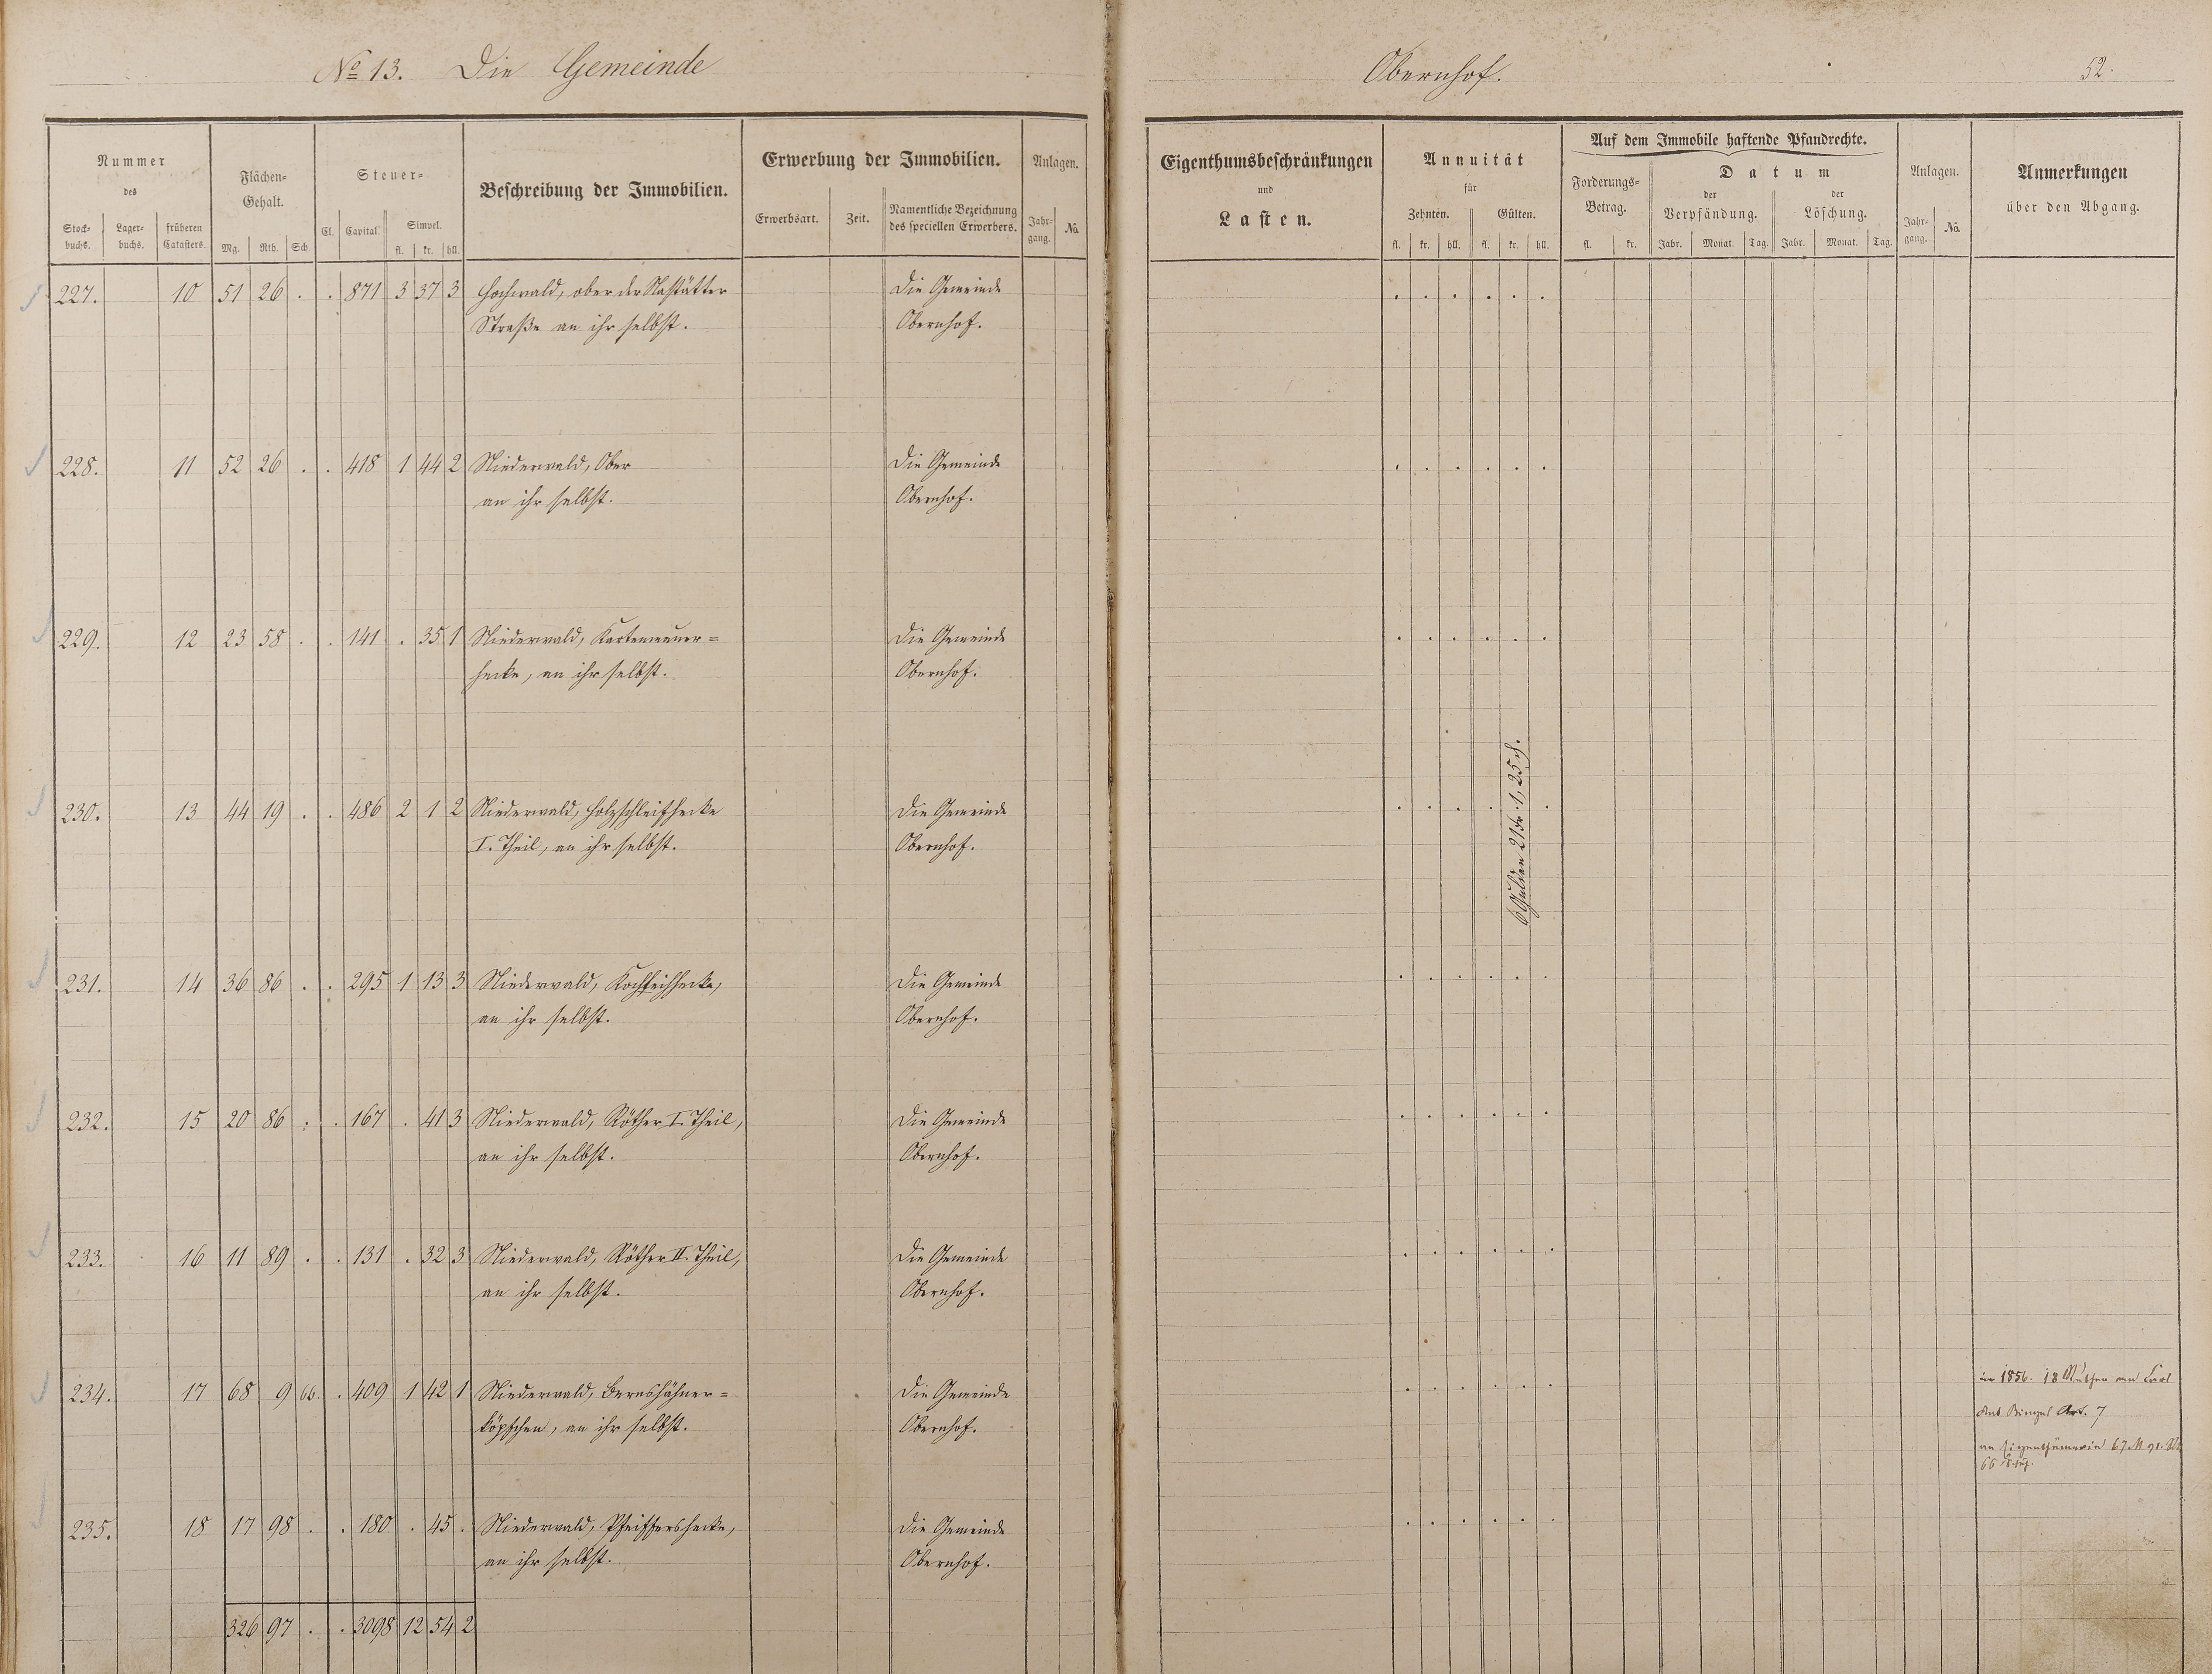 No 13. Die Gemeinde
Obernhof.
52.
Nummer
des
Stock-
buchs.
Lager-
buchs.
früheren
Catasters.
Flächen-
Gehalt.
Mg. Rth. Sch.
Steuer-
Cl. Capital.
Simpel.
fl. kr. hll.
Beschreibung der Immobilien.
Erwerbung der Immobilien.
Erwerbsart. Zeit.
Namentliche Bezeichnung
des speciellen Erwerbers.
Anlagen.
Jahr-
gang.
No.
Eigenthumsbeschränkungen
und
Lasten.
Annuität
für
Zehnten. Gülten.
fl. kr. hll. fl. kr. hll.
Auf dem Immobile haftende Pfandrechte.
Forderungs-
Betrag.
fl. kr.
Datum
der
Verpfändung.
der
Löschung.
Jahr. Monat. Tag. Jahr. Monat. Tag.
Anlagen.
Jahr-
gang.
No.
Anmerkungen
über den Abgang.
227. 10 51 26 . . 871 3 37 3 Hochwald, ober der Nastätter Die Gemeinde
Straße an ihr selbst. Obernhof.
228. 11 52 26 . . 418 1 44 2 Niederwald, Ober Die Gemeinde
an ihr selbst. Obernhof.
229. 12 23 58 . . 141 . 35 1 Niederwald, Die Gemeinde
hecke, an ihr selbst. Obernhof.
230. 13 44 19 . . 486 2 1 2 Niederwald, Holzschleifhecke Die Gemeinde
I. Theil, an ihr selbst. Obernhof.
6 Gulden
231. 14 36 86 . . 295 1 13 3 Niederwald, Die Gemeinde
an ihr selbst. Obernhof.
232. 15 20 86 . . 167 . 41 3 Niederwald, Röther I. Theil, Die Gemeinde
an ihr selbst. Obernhof.
233. 16 11 89 . . 131 . 32 3 Niederwald, Röther II. Theil, Die Gemeinde
an ihr selbst. Obernhof.
234. 17 68 9 66. . 409 1 42 1 Niederwald, Bernshähner= Die Gemeinde
köpfchen, an ihr selbst. Obernhof.
in 1856. 18 Ruthen an Carl
Art. 7
an Eigenthümerin 67 M 91. Rth
66
235. 18 17 98 . . 180 . 45 . Niederwald, Pfeiffershecke, Die Gemeinde
an ihr selbst. Obernhof.
326 97 . . 3098 12 54 2